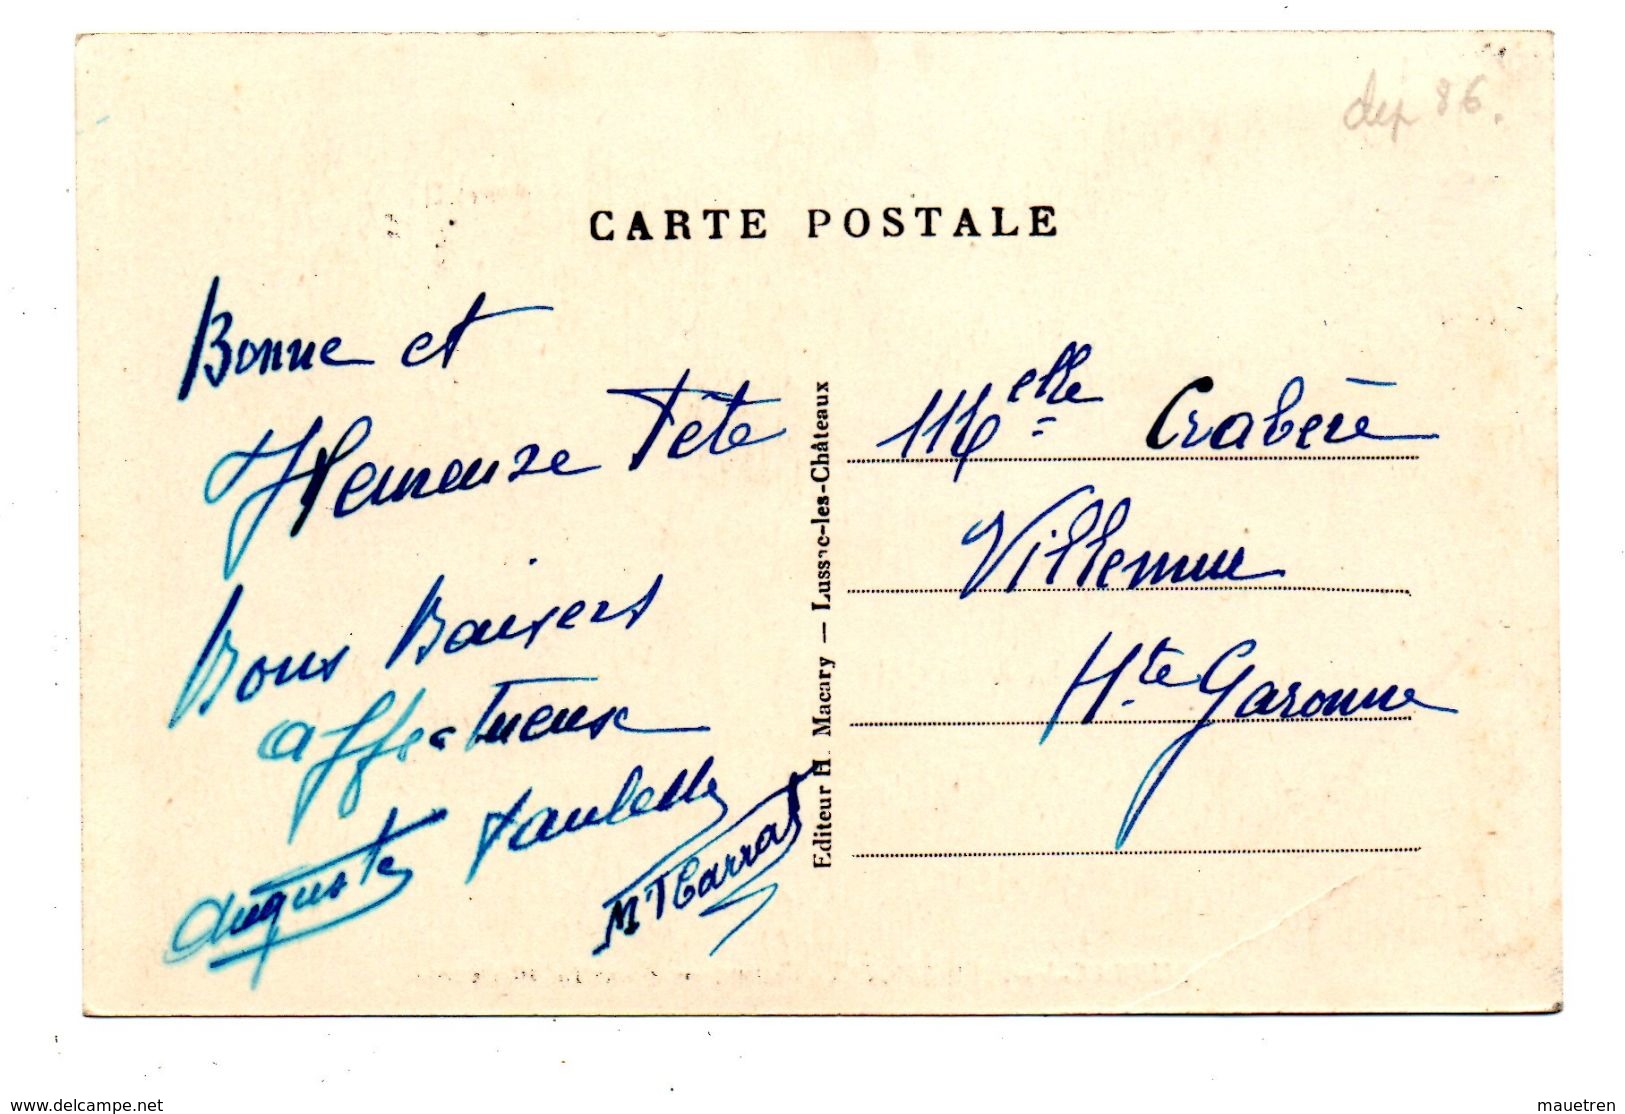 dep 86.
CARTE POSTALE
Bonne et
Heureuse Fête
Bons Baisers
affectueux
Auguste Paulette
MT Carrat
Editeur H. Macary — Lussac-les-Châteaux
Melle Crabère
Villemur
Hte Garonne
www.delcampe.net
mauetren